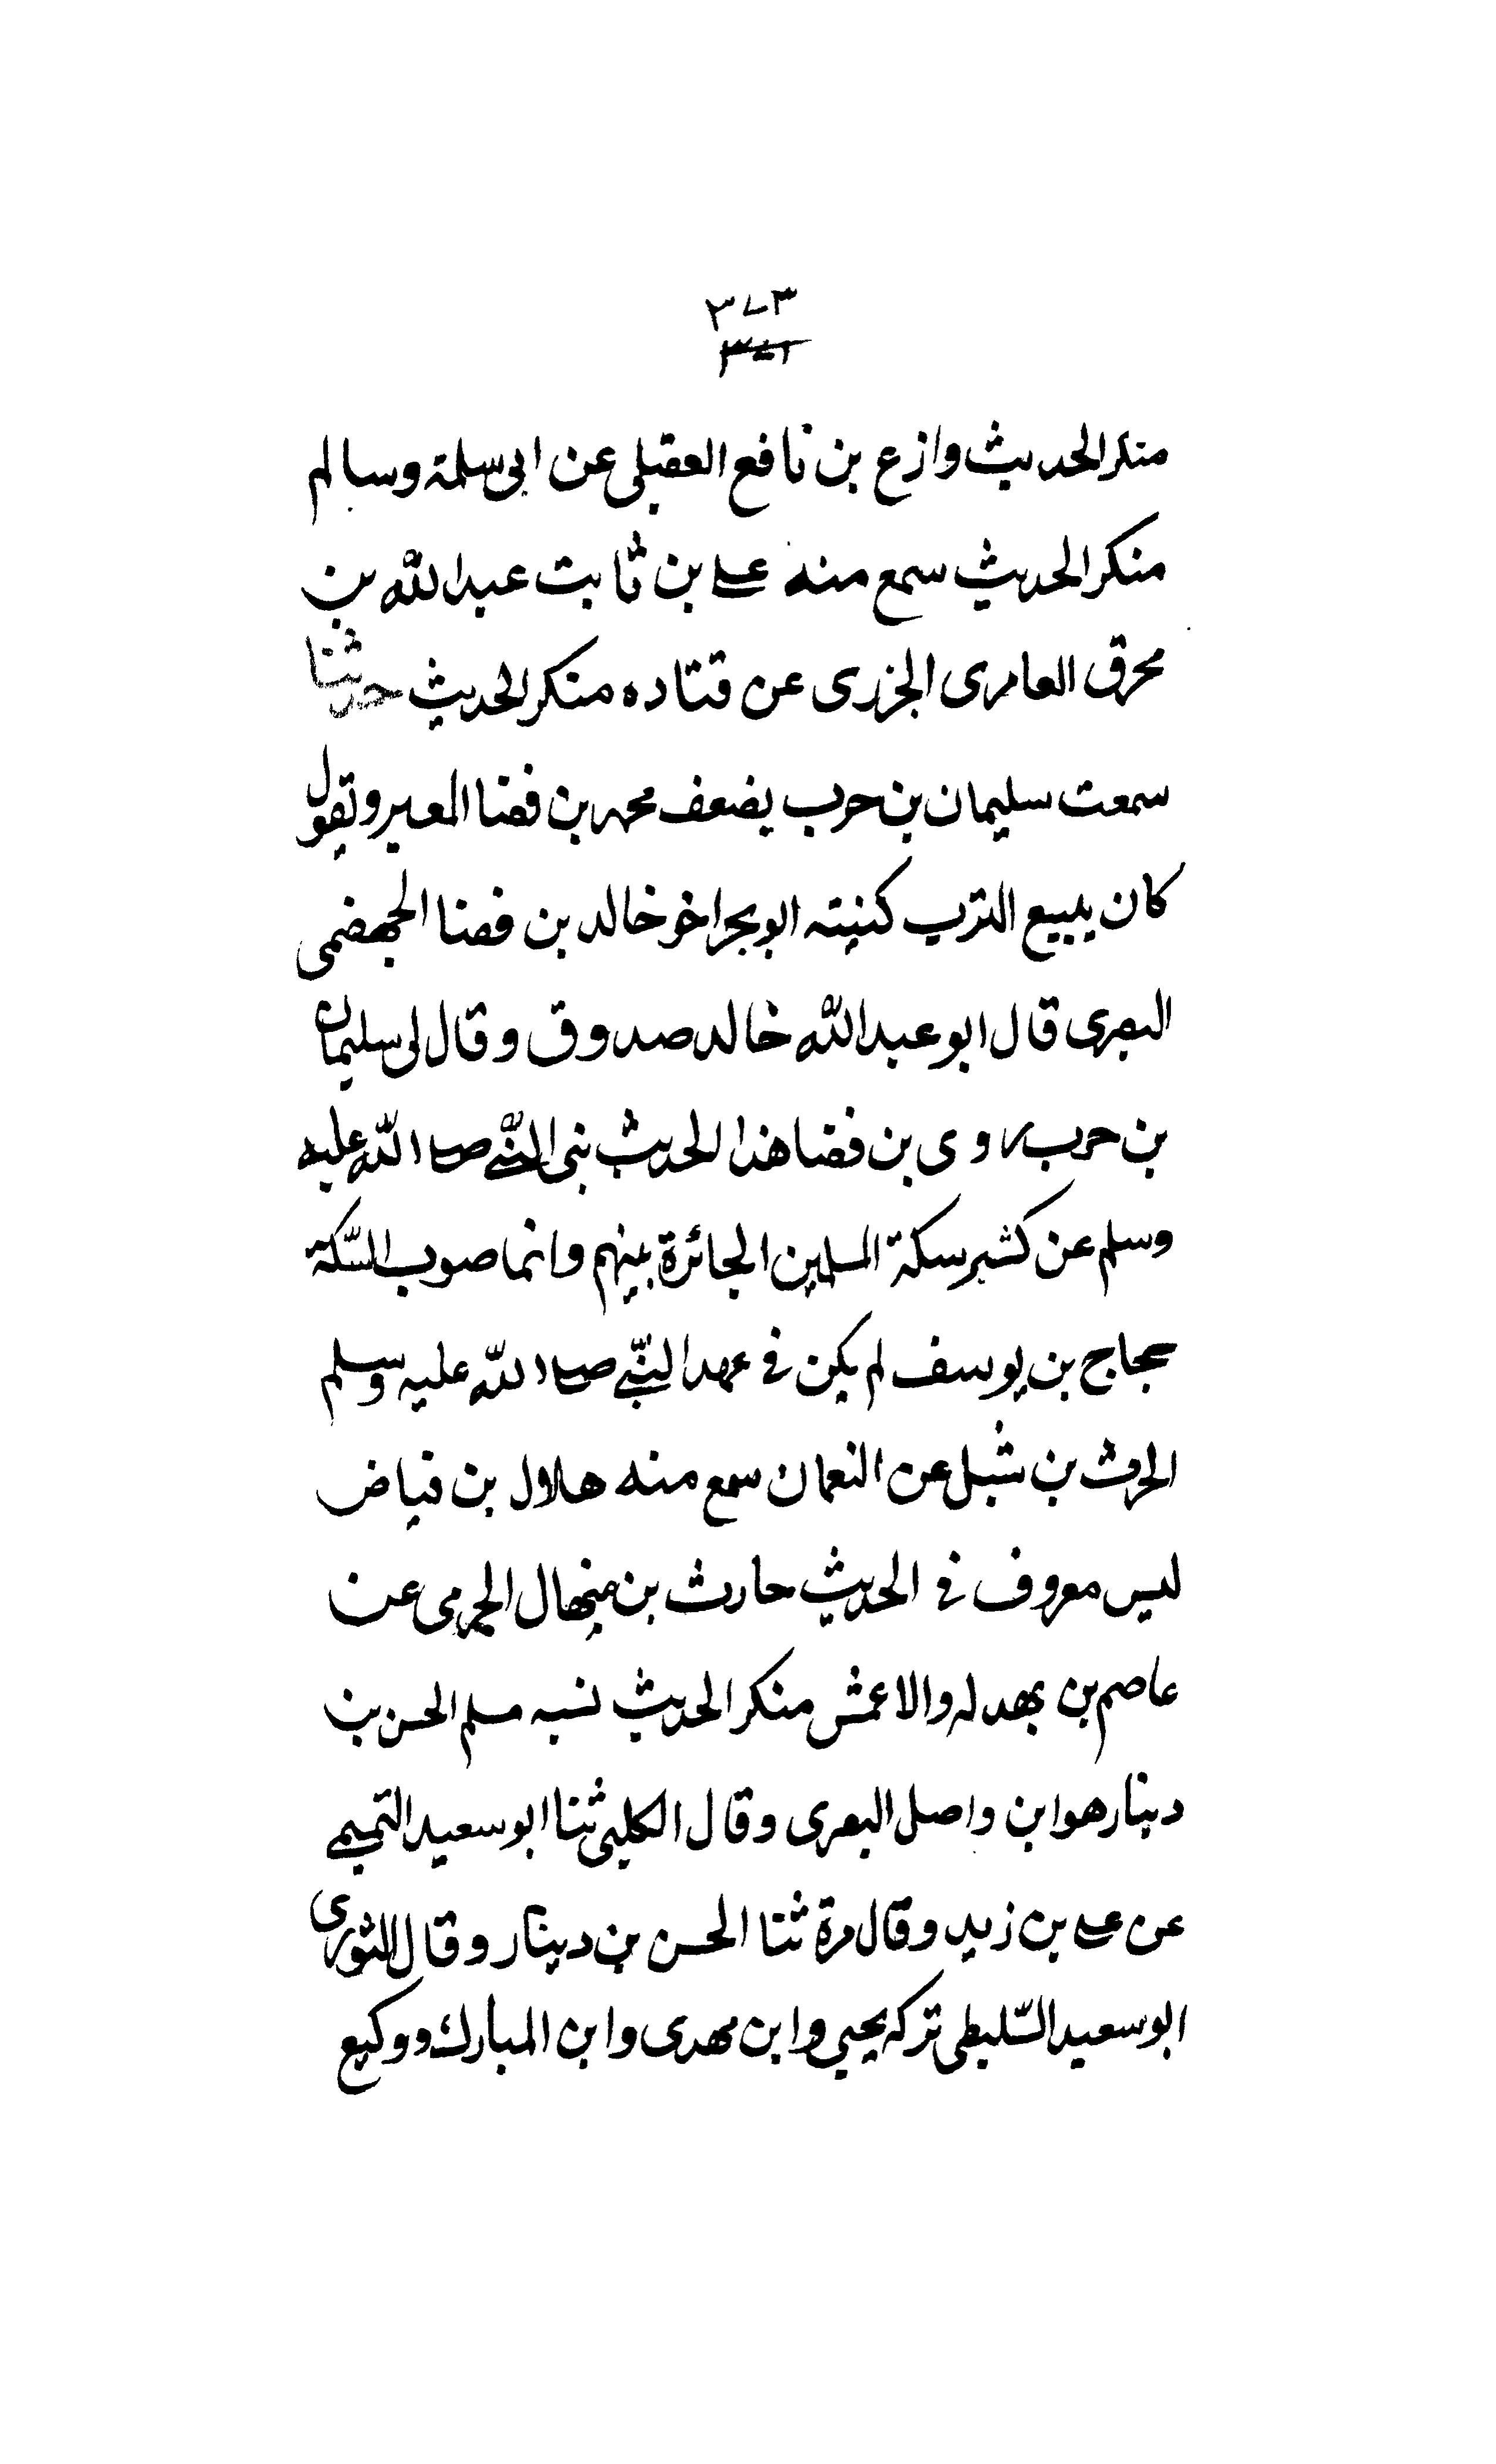 ٣٧٣
٣٧٢
منكر الحديث وازع بن نافع العقيلى عن ابى سلمة وسالم
منكر الحديث سمع منه على بن ثابت عبد الله بن
محرق العامرى الجزرى عن قتاده منكر الحديث حدثنا
سمعت سليمان بن حرب يضعف محمد بن فضا المعبر ويقول
كان يبيع الشرب كنيته ابو بحر اخو خالد بن فضا الجهضمى
البصرى قال ابو عبد الله خالد صدوق وقال لى سليمان
بن حرب روى بن فضا هذا الحديث نهى النبى صلى الله عليه
وسلم عن كسر سكة المسلمين الجائزة بينهم وانما ضرب السكة
حجاج بن يوسف لم يكن فى عهد النبى صلى الله عليه وسلم
الحرث بن شبل عن النعمان سمع منه هلال بن فياض
ليس معروف فى الحديث حارث بن منهال الجرمى عن
عاصم بن بهدله والاعمش منكر الحديث نسبه مسلم الحسن بن
دينار هو ابن واصل البصرى وقال الكلبى ثنا ابو سعيد التميمى
عن على بن زيد وقال مرة ثنا الحسن بن دينار وقال الثورى
ابو سعيد السّليطى تركه يحيى وابن مهدى وابن المبارك ووكيع